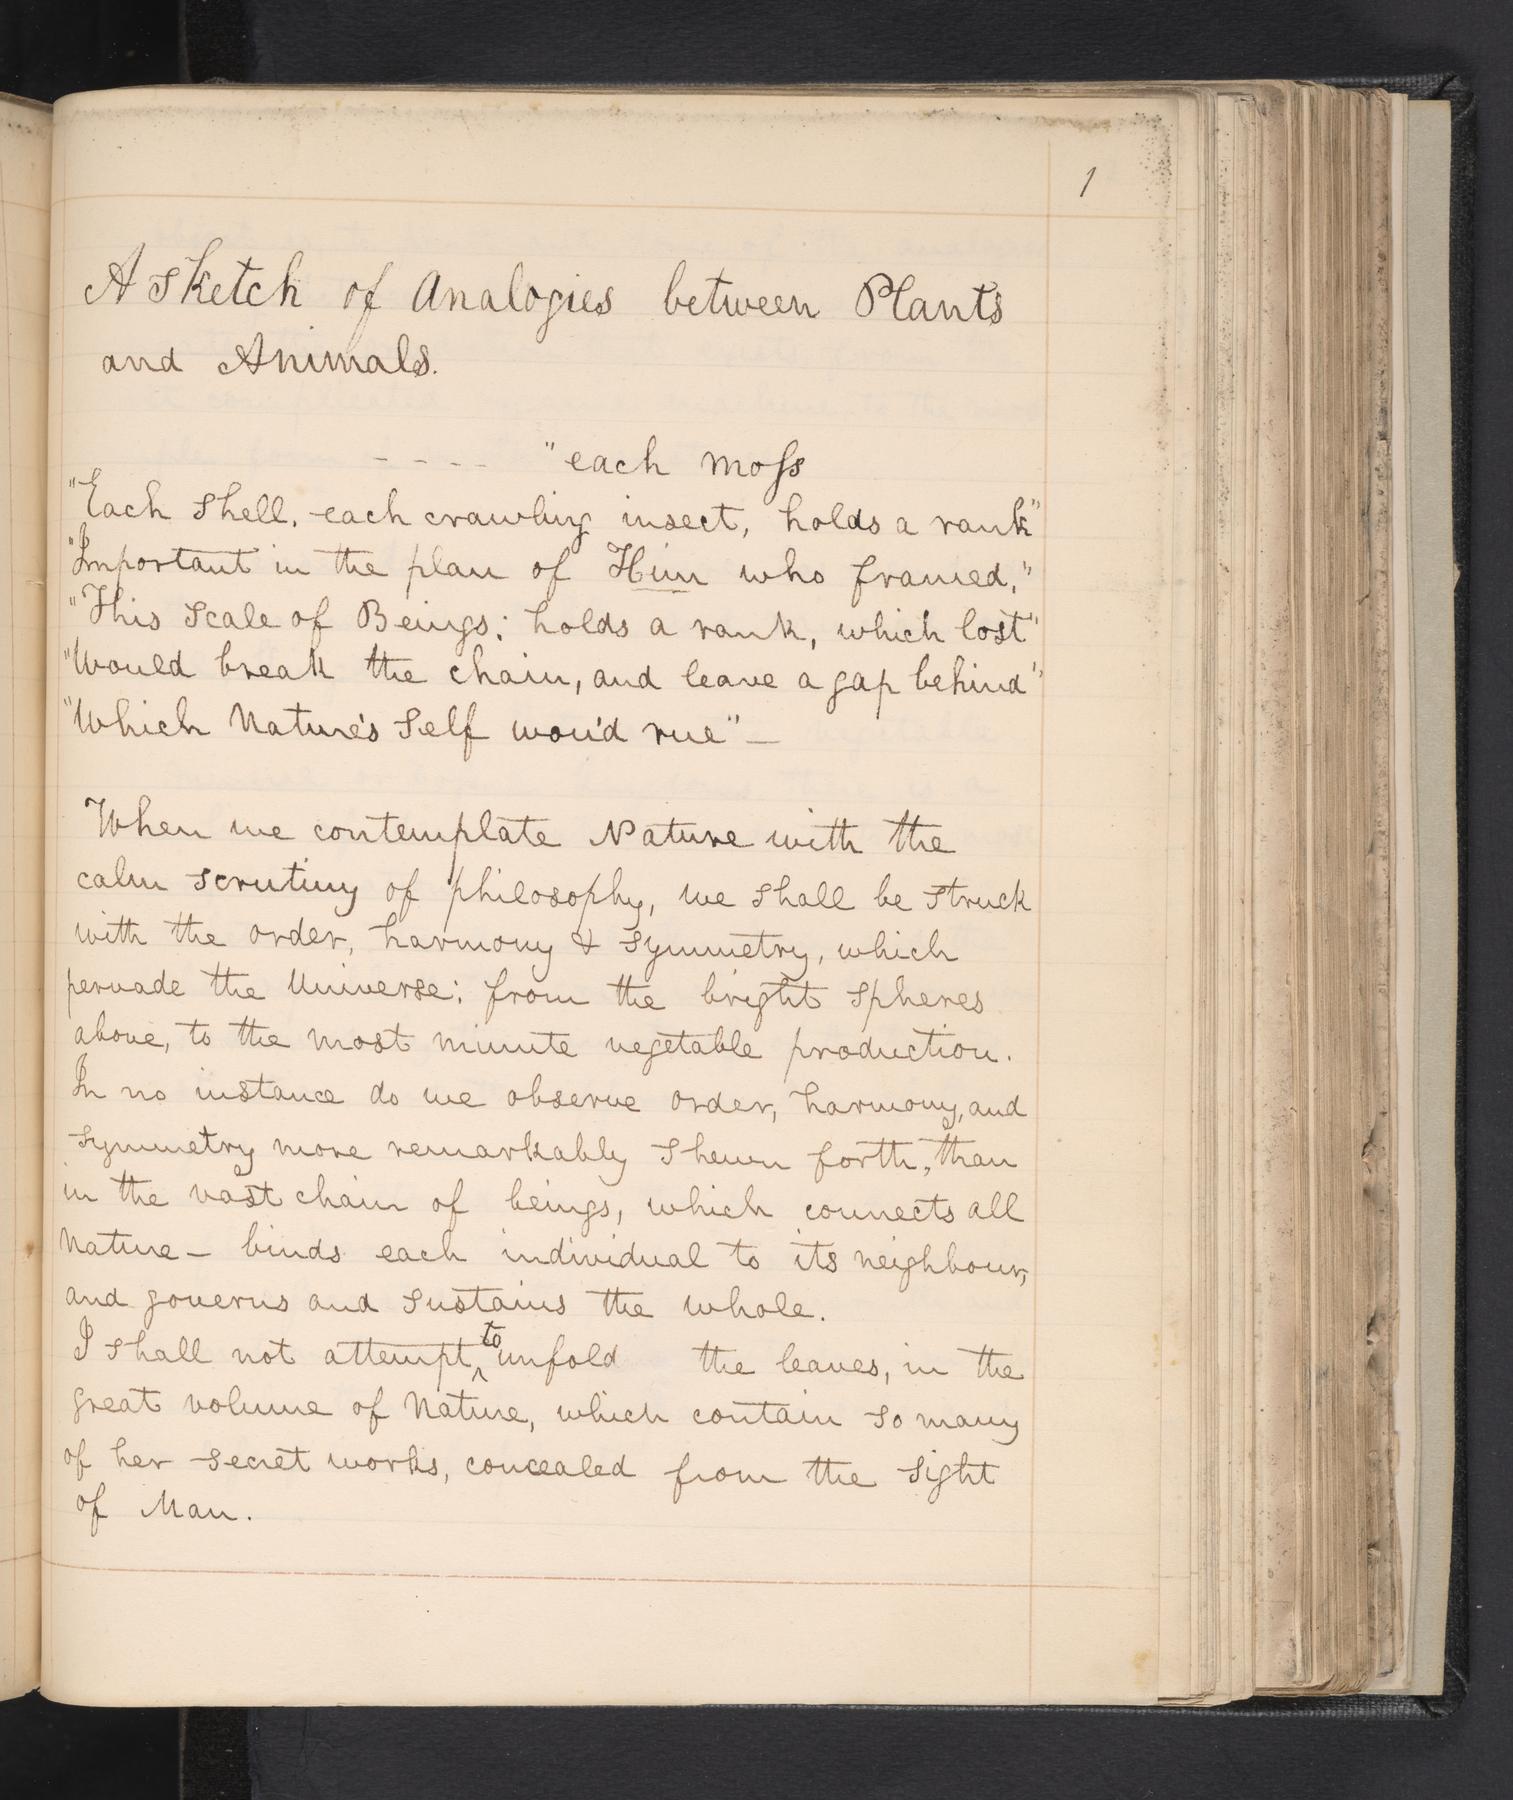 1
A Sketch of Analogies between Plants
and Animals.
- - - - "each moſs
"Each Shell, each crawling insect, holds a rank"
"Important in the plan of Him who framed,"
"This Scale of Beings; holds a rank, which lost"
"Would break the chain, and leave a gap behind"
"Which Nature's Self wou'd rue" —
When we contemplate Nature with the
calm scrutiny of philosophy, we shall be struck
with the order, harmony & Symmetry, which
pervade the Universe: from the bright Spheres
above, to the most minute vegetable production.
In no instance do we observe order, harmony, and
Symmetry more remarkably Shewn forth, than
in the vast chain of beings, which connects all
Nature — binds each individual to its neighbour,
and governs and Sustains the whole.
I Shall not attempt to unfold the leaves, in the
great volume of Nature, which contain So many
of her Secret works, concealed from the Sight
of Man.